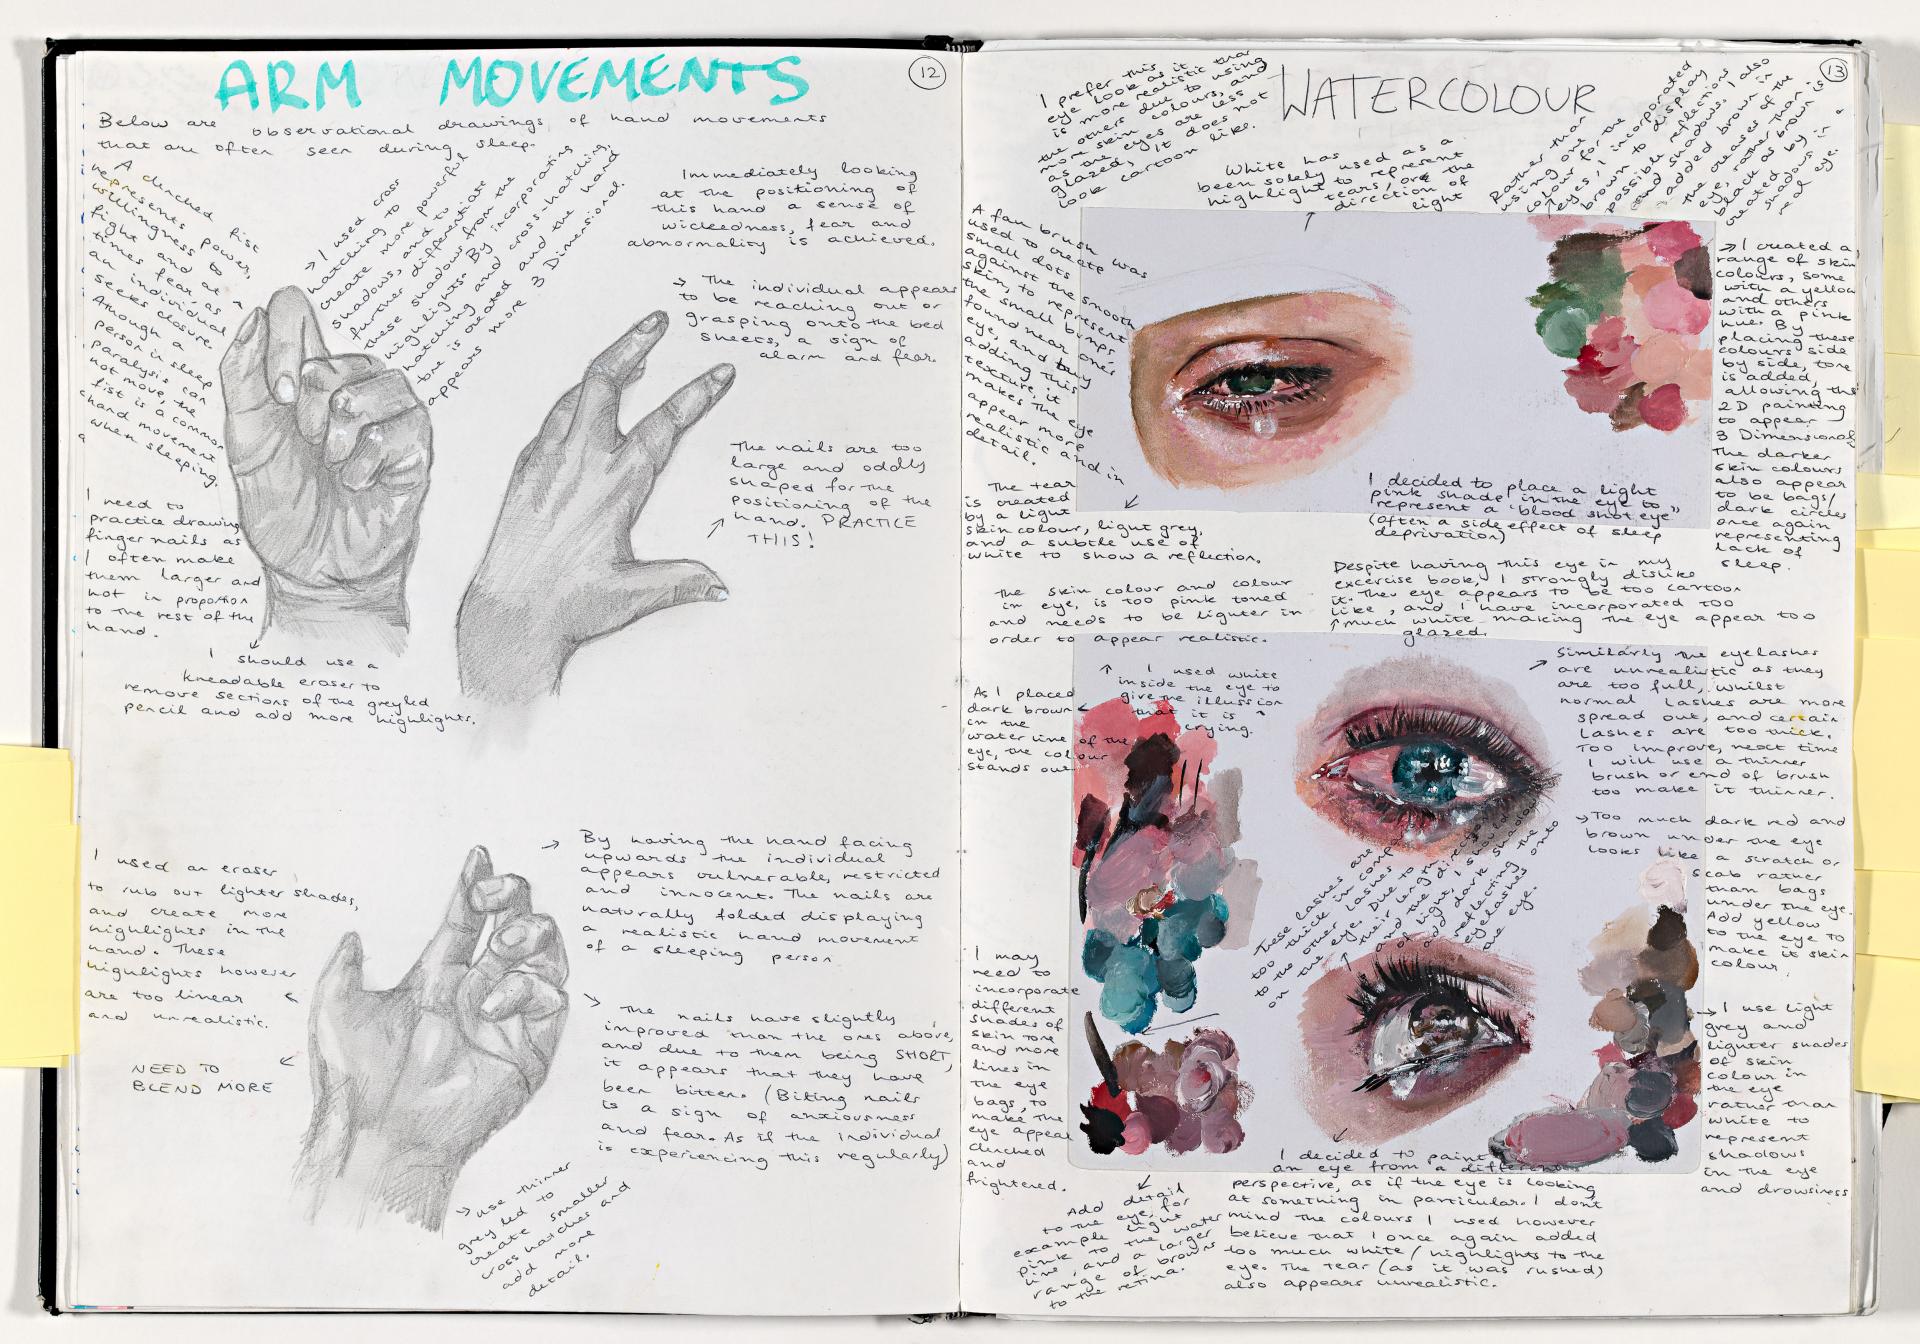 ARM MOVEMENTS
12
Below are observational drawings of hand movements
that are often seen during sleep.
A clenched fist
represents power,
willingness to
fight and at
times fear, as
an individual
seeks closure.
Although a
person in sleep
paralysis can
not move, the
fist is a common
hand movement
when sleeping.
→ I used cross
hatching to
create more powerful
shadows, and to
further differentiate
these shadows from the
highlights. By incorporating
hatching and cross-hatching,
tone is created and the hand
appears more 3 Dimensional.
Immediately looking
at the positioning of
this hand a sense of
wickedness, fear and
abnormality is achieved.
→ The individual appears
to be reaching out or
grasping onto the bed
sheets, a sign of
alarm and fear.
The nails are too
large and oddly
shaped for the
positioning of the
hand. PRACTICE
THIS!
I need to
practice drawing
finger nails as
I often make
them larger and
not in proportion
to the rest of the
hand.
I should use a
kneadable eraser to
remove sections of the greyled
pencil and add more highlights.
I used an eraser
to rub out lighter shades,
and create more
highlights in the
hand. These
highlights however
are too linear
and unrealistic.
NEED TO
BLEND MORE
→ By having the hand facing
upwards the individual
appears vulnerable, restricted
and innocent. The nails are
naturally folded displaying
a realistic hand movement
of a sleeping person
The nails have slightly
improved than the ones above,
and due to them being SHORT,
it appears that they have
been bitten. (Biting nails
is a sign of anxiousness
and fear. As if the individual
is experiencing this regularly)
→ use thinner
greyled to
create smaller
cross hatches and
add more
detail.
WATERCOLOUR
13
I prefer this
eye look as it
is more realistic than
the others due to using
more skin colours, and
as the eyes are less
glazed, it does not
look cartoon like.
White has
been solely used as a
highlight to represent
tears/ or the
direction of
light
Rather than
using one
colour for the
eyes, I incorporated
brown to display
possible reflections
and shadows. I also
added brown in
the creases of the
eye, rather than
black as brown is
created by
shadows in a
real eye.
A fan brush was
used to create
small dots
against the smooth
skin, to represent
the small bumps
found near one's
eye, and by
adding this
texture, it
makes the eye
appear more
realistic and in
detail.
→ I created a
range of skin
colours, some
with a yellow
and others
with a pink
hue. By
placing these
colours side
by side, tone
is added,
allowing the
2D painting
to appear
3 Dimensional.
The darker
skin colours
also appear
to be bags/
dark circles
once again
representing
lack of
sleep.
The tear
is created
by a light
skin colour, light grey,
and a subtle use of
white to show a reflection.
I decided to place a light
pink shade in the eye to
represent a "blood shot eye"
(often a side effect of sleep
deprivation)
The skin colour and colour
in eye, is too pink toned
and needs to be lighter in
order to appear realistic.
Despite having this eye in my
excercise book, I strongly dislike
it. The eye appears to be too cartoon
like, and I have incorporated too
much white making the eye appear too
glazed.
I used white
inside the eye to
give the illussion
that it is
crying.
As I placed
dark brown
in the
water line of the
eye, the colour
stands out
Similarly the eyelashes
are unrealistic as they
are too full, whilst
normal lashes are more
spread out, and certain
lashes are too thick.
Too improve, next time
I will use a thinner
brush or end of brush
too make it thinner.
→ Too much dark red and
brown under the eye
looks like a scratch or
scab rather
than bags
under the eye.
Add yellow
to the eye to
make it skin
colour.
These lashes are
too thick in comparison
to the other lashes
on the eye. Due to
their length
and the direction
of light, I should
add dark shadow
reflecting the
eyelashes onto
the eye.
I may
need to
incorporate
different
shades of
skin tone
and more
lines in
the eye
bags, to
make the
eye appear
clenched
and
frightened.
→ I use light
grey and
lighter shades
of skin
colour in
the eye
rather than
white to
represent
shadows
in the eye
and drowsiness
Add detail
to the eye, for
example light
pink to the water
line, and a larger
range of browns
to the retina.
I decided to paint
an eye from a different
perspective, as if the eye is looking
at something in particular. I don't
mind the colours I used however
believe that I once again added
too much white/highlights to the
eye. The tear (as it was rushed)
also appears unrealistic.